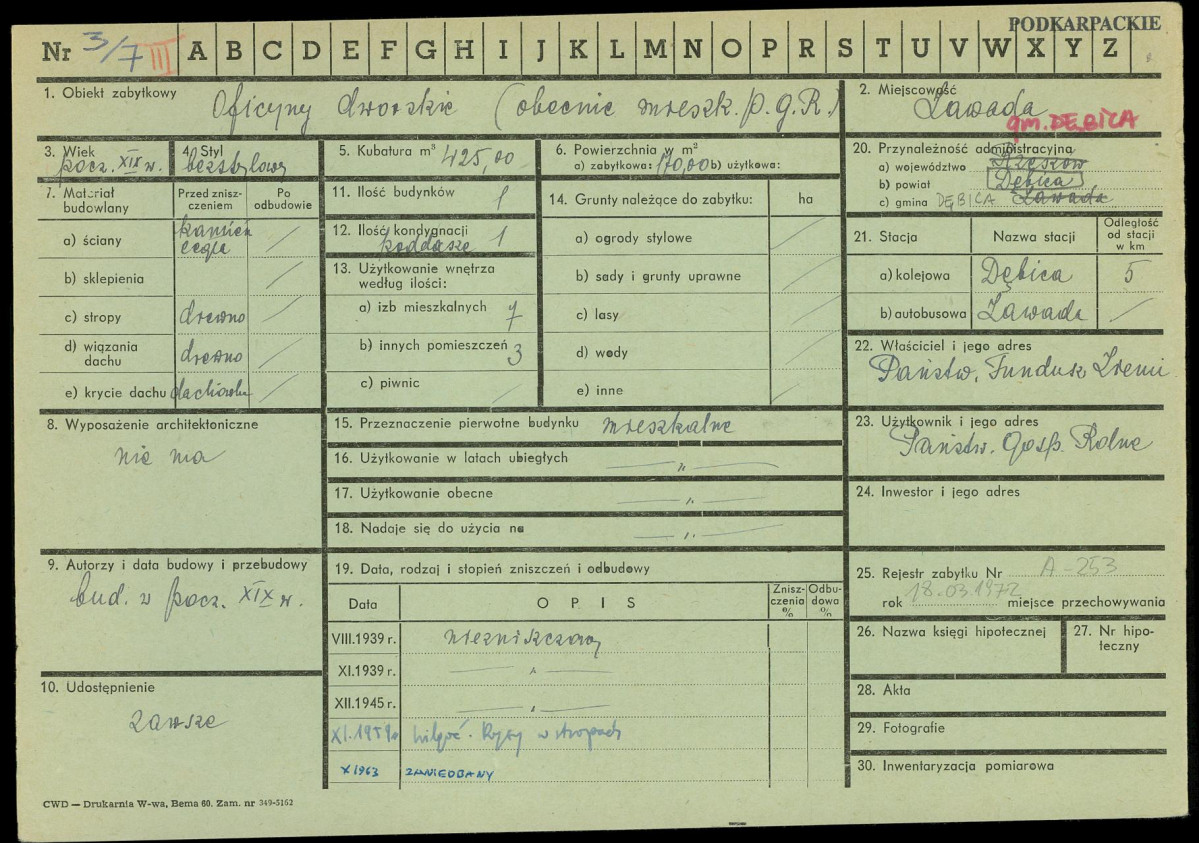 PODKARPACKIE
Nr 3/7 III A B C D E F G H I J K L M N O P R S T U V W X Y Z
1. Obiekt zabytkowy Oficyny dworskie (obecnie mieszk. P.G.R.)
2. Miejscowość
Zawada
gm. DĘBICA
3. Wiek
pocz. XIX w.
4. Styl
bezstylowy
5. Kubatura m³ 425,00
6. Powierzchnia w m²
a) zabytkowa: 170,00 b) użytkowa:
20. Przynależność administracyjna
a) województwo Rzeszów
b) powiat Dębica
c) gmina DĘBICA Zawada
7. Materiał budowlany
Przed zniszczeniem
Po odbudowie
a) ściany kamień cegła /
b) sklepienia /
c) stropy drewno /
d) wiązania dachu drewno /
e) krycie dachu dachówka /
11. Ilość budynków 1
12. Ilość kondygnacji 1
poddasze
13. Użytkowanie wnętrza
według ilości:
a) izb mieszkalnych 7
b) innych pomieszczeń 3
c) piwnic /
14. Grunty należące do zabytku: ha
a) ogrody stylowe /
b) sady i grunty uprawne /
c) lasy /
d) wody /
e) inne /
21. Stacja
Nazwa stacji
Odległość
od stacji
w km
a) kolejowa Dębica 5
b) autobusowa Zawada /
22. Właściciel i jego adres
Państw. Fundusz Ziemi
8. Wyposażenie architektoniczne
nie ma
15. Przeznaczenie pierwotne budynku mieszkalne
16. Użytkowanie w latach ubiegłych — " —
17. Użytkowanie obecne — " —
18. Nadaje się do użycia na — " —
23. Użytkownik i jego adres
Państw. Gosp. Rolne
24. Inwestor i jego adres
9. Autorzy i data budowy i przebudowy
bud. w pocz. XIX w.
10. Udostępnienie
zawsze
19. Data, rodzaj i stopień zniszczeń i odbudowy
Data
O P I S
Znisz-
czenia
%
Odbu-
dowa
%
VIII.1939 r. niezniszczony
XI.1939 r. — " —
XII.1945 r. — " —
XI.1959r wilgoć. Rysy w stropach
X 1963 ZANIEDBANY
25. Rejestr zabytku Nr A-253
rok 18.03.1972 miejsce przechowywania
26. Nazwa księgi hipotecznej
27. Nr hipo-
teczny
28. Akta
29. Fotografie
30. Inwentaryzacja pomiarowa
CWD — Drukarnia W-wa, Bema 60. Zam. nr 349-5162